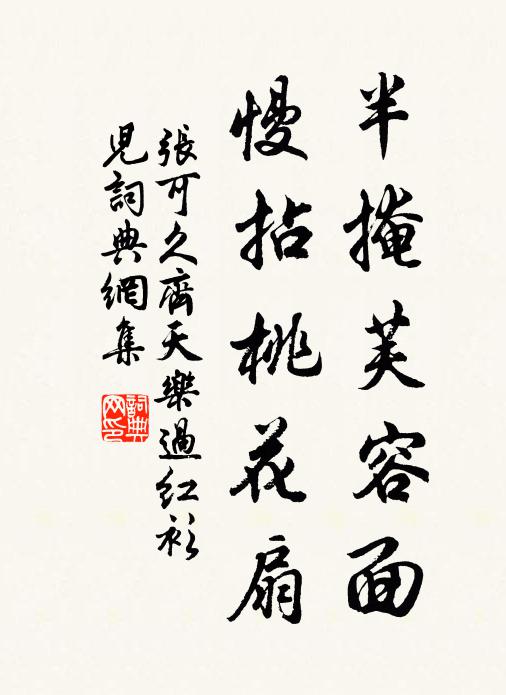 半掩芙容面
慢拈桃花扇
張可久齊天樂過紅衫
児詞典網集
詞典
网印